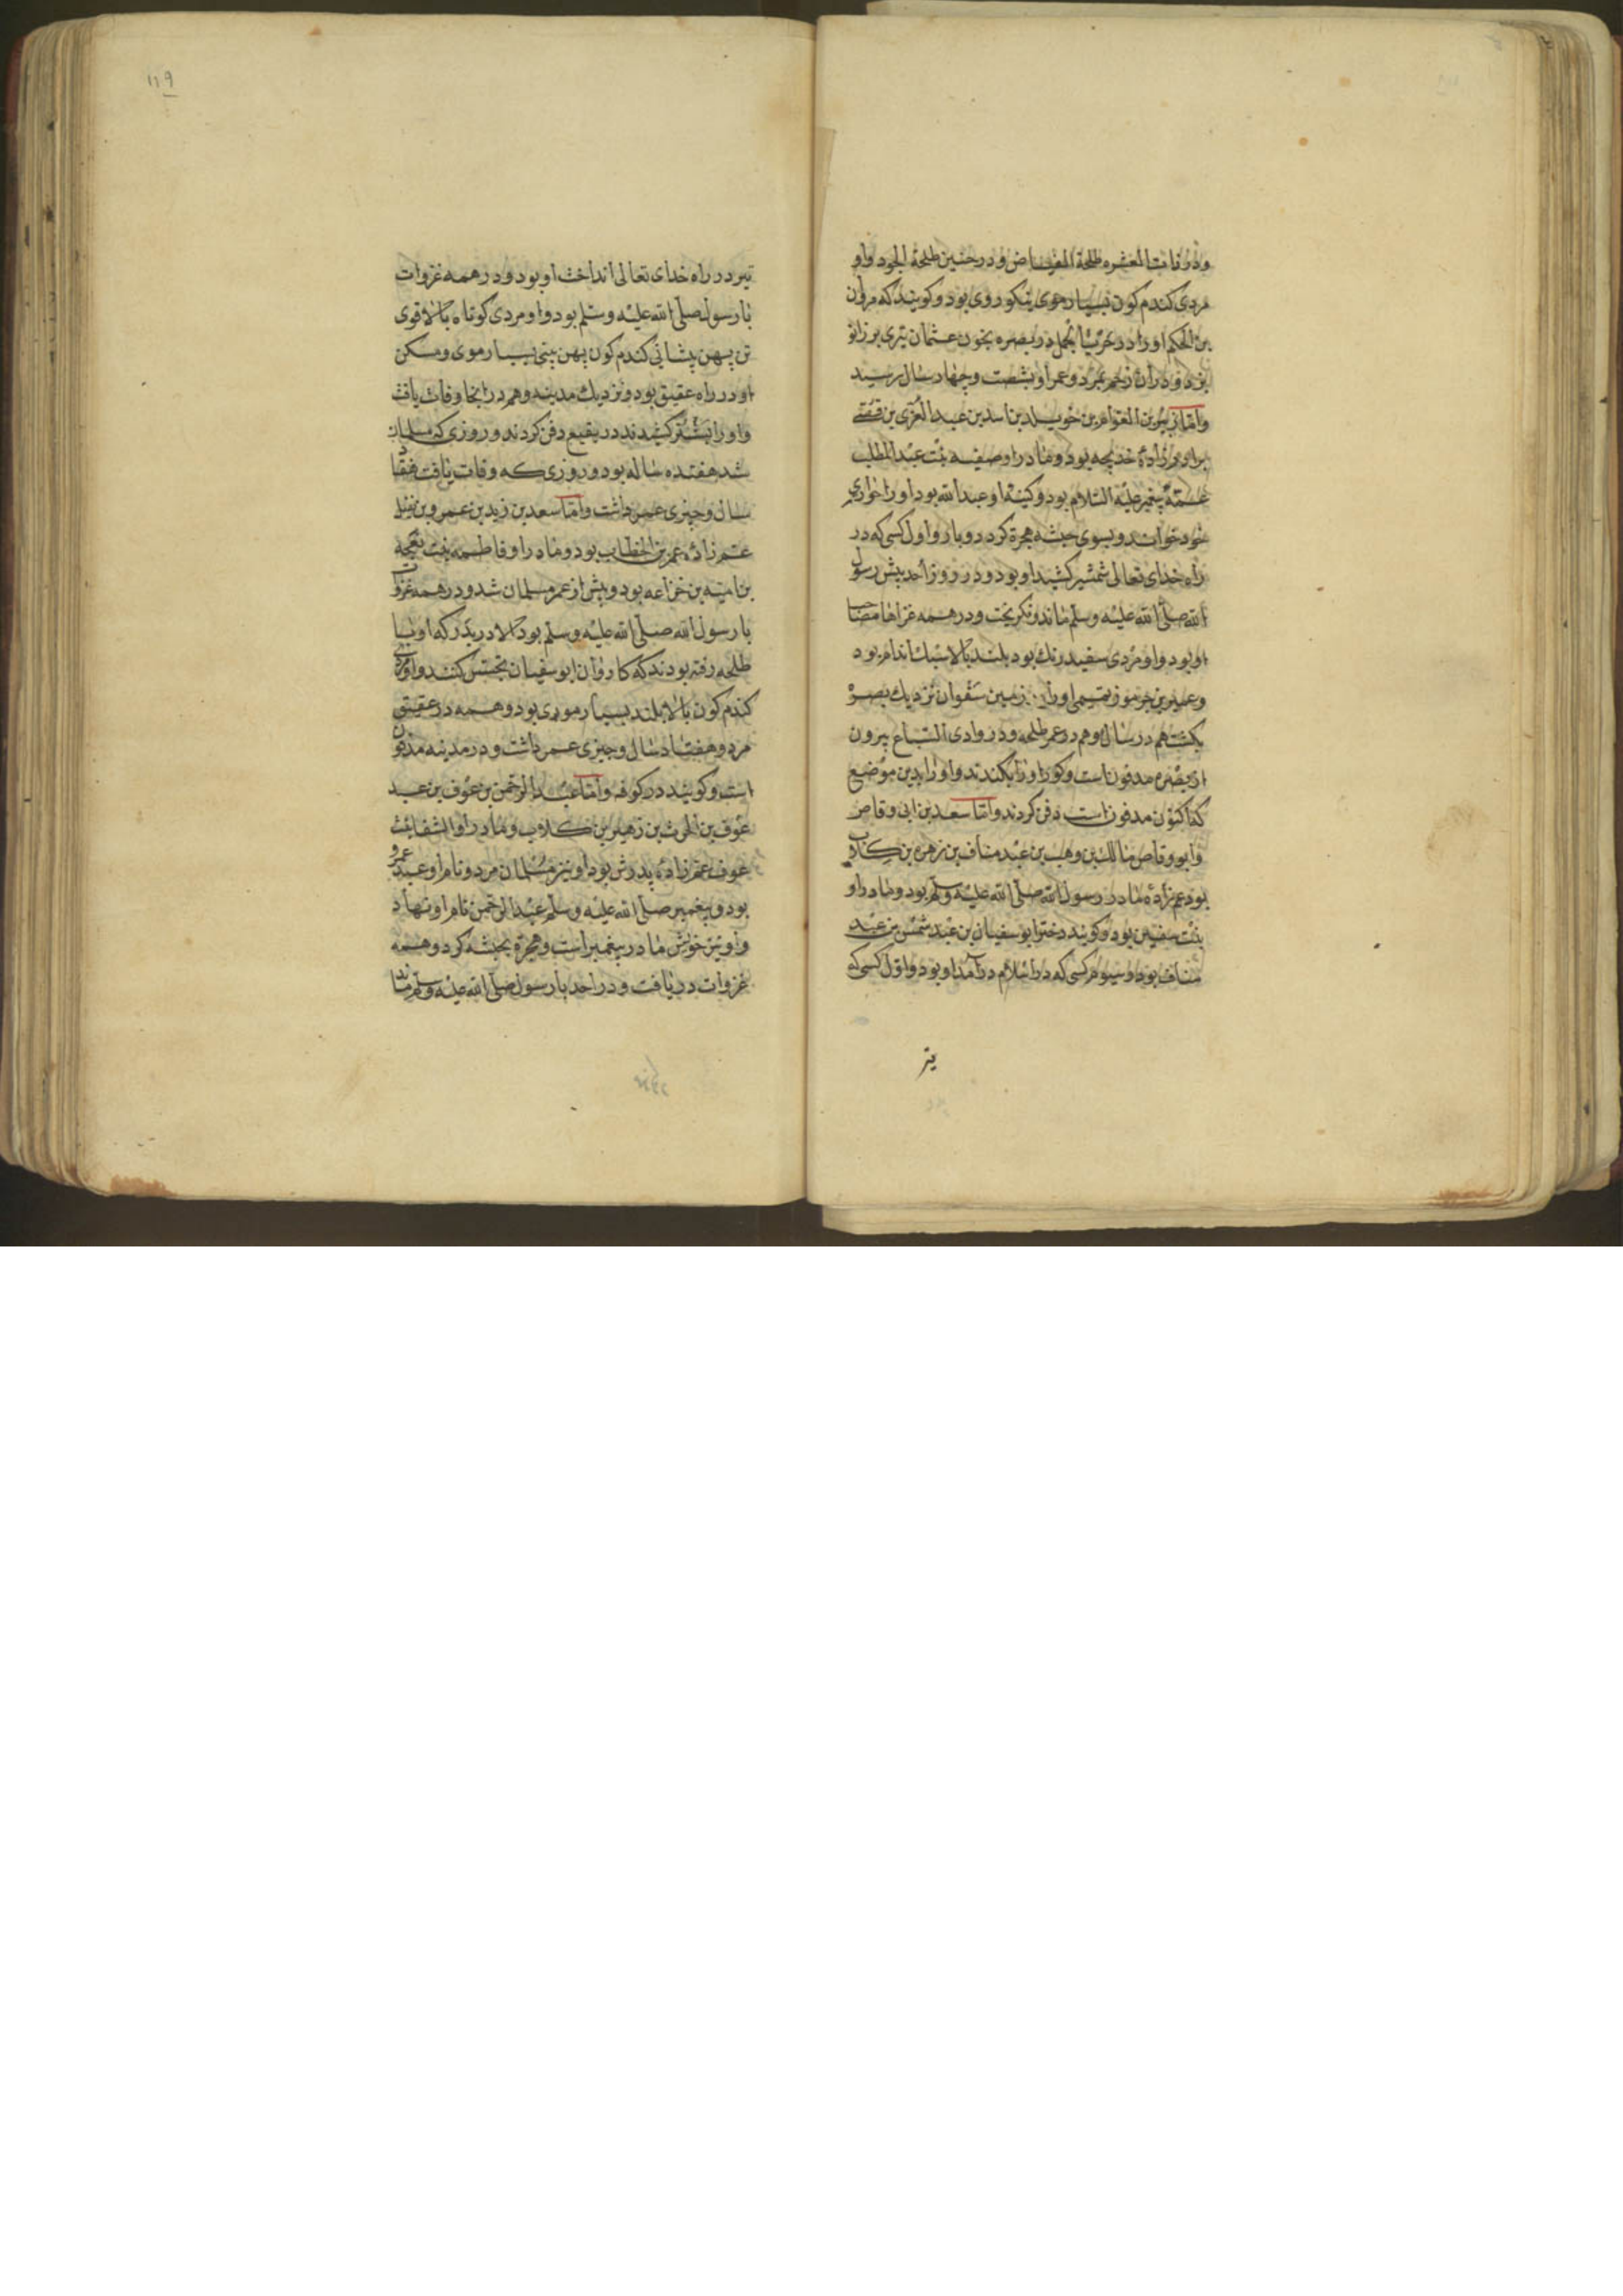 و در ذات العشره طلحة الفیاض و در حنین طلحة الجود و او
مردی کندم کون بسیار موی نیکو روی بود و کویند که مروان
بن الحکم او را در حرب جمل در بصره بخون عثمان تیری بر زانو
بزد و در ان زخم بمرد و عمر او بشصت و چهار سال رسید
و امّا زبیر بن العوام بن خویلد بن اسد بن عبد العزی بن قصی
برادر زادهٔ خدیجه بود و مادر او صفیه بنت عبد المطلب
عمّهٔ پیغمبر علیه السلام بود و کنیة او عبد الله بود او را حواری
خود خواند و بسوی حبشه هجرة کرد دو بار و اول کسی که در
راه خدای تعالی شمشیر کشید او بود و در روز احد پیش رسول
الله صلّی الله علیه و سلّم ماند و نکریخت و در همه غزاها مصاحب
او بود و او مردی سفید رنك بود بلند بالا سبك اندام بود
و عمیر بن جرموز تمیمی او را زمین سفوان نزدیك بصره
بکشت هم در سال و هم در عمر طلحه و در وادی السباع بیرون
از بصره مدفون است و کور او را بکندند و او را بدین موضع
که اکنون مدفون است دفن کردند و امّا سعد بن ابی وقاص
و ابو وقاص مالك بن وهب بن عبد مناف بن زهره بن کلاب
بود عم زاده مادر رسول الله صلّی الله علیه و سلّم بود و مادر او
بنت سفین بود و کویند دختر ابو سفیان بن عبد شمس بن عبد
مناف بود و سیوم کسی که در اسلام در آمد او بود و اوّل کسی که
تیر
۱۱۹
تیر در راه خدای تعالی انداخت او بود و در همه غزوات
با رسول صلّی الله علیه و سلّم بود و او مردی کوتاه بالا قوی
تن پهن پیشانی کندم کون پهن بینی بسیار موی و مسکن
او در راه عقیق بود و نزدیك مدینه و هم در انجا وفات یافت
و او را کشیدند در بقیع دفن کردند و روزی که مسلمان
شد هفتده ساله بود و روزی که وفات یافت هفتاد
سال و چیزی عمر داشت و امّا سعد بن زید بن عمرو بن نفیل
عم زاده عمر بن الخطاب بود و مادر او فاطمه بنت بعجه
بن امیّه بن خزاعه بود و پیش از عمر مسلمان شد و در همه غزوات
با رسول الله صلّی الله علیه و سلّم بود الا در بدر که او با
طلحه رفته بودند که کاروان ابو سفیان تجسّس کنند و او مردی
کندم کون بالا بلند بسیار موی بود و همه در عقیق
مرد و هفتاد سال و چیزی عمر داشت و در مدینه مدفون
است و کویند در کوفه و امّا عبد الرحمن بن عوف بن عبد
عوف بن الحرث بن زهره بن کلاب و مادر او الشفا بنت
عوف عم زادهٔ پدرش بود او نیز مسلمان مرد و نام او عبد عمرو
بود و پیغمبر صلّی الله علیه و سلّم عبد الرحمن نام او نهاد
و او نیز خویش مادر پیغمبر است و هجرة بحبشه کرد و همه
غزوات دریافت و در احد با رسول صلّی الله علیه و سلّم ماند